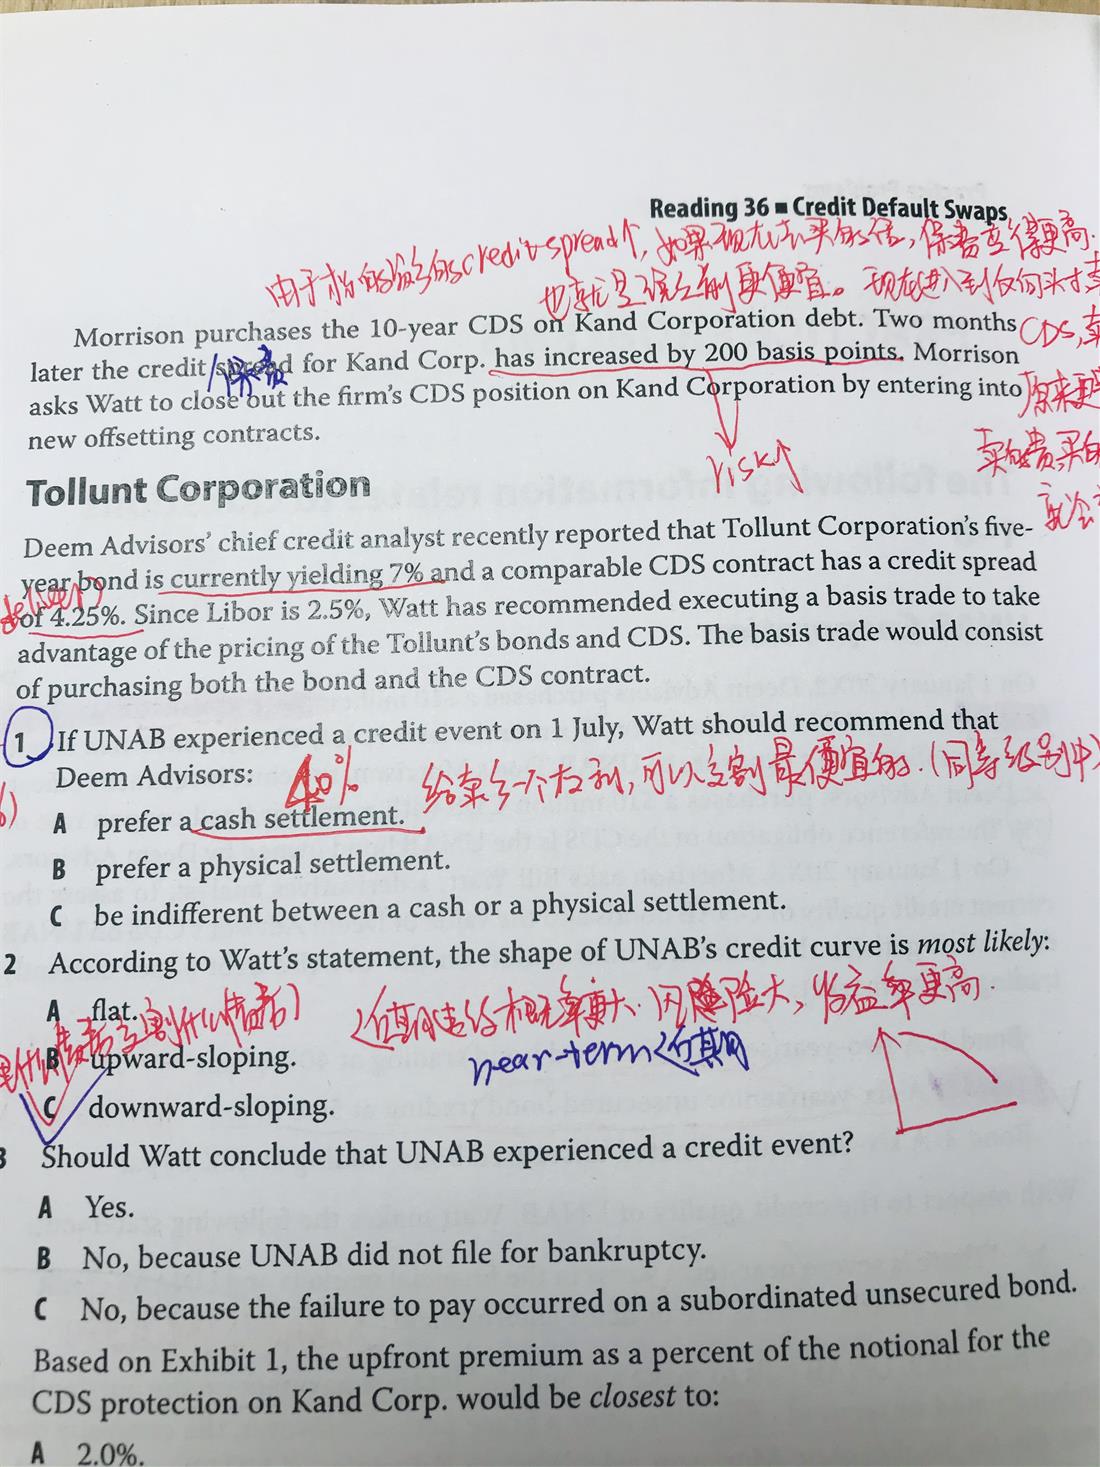 Reading 36 ■ Credit Default Swaps
由于我的 的credit spread↑,如果现在去买的话,保费变得更高.
也就是说之前更便宜。现在进入到反向头寸
Morrison purchases the 10-year CDS on Kand Corporation debt. Two months
CDS,
later the credit spread for Kand Corp. has increased by 200 basis points. Morrison
保费
asks Watt to close out the firm's CDS position on Kand Corporation by entering into
原来更
new offsetting contracts.
卖的贵买的
risk↑
Tollunt Corporation
就会
Deem Advisors' chief credit analyst recently reported that Tollunt Corporation's five-
year bond is currently yielding 7% and a comparable CDS contract has a credit spread
deliver
of 4.25%. Since Libor is 2.5%, Watt has recommended executing a basis trade to take
advantage of the pricing of the Tollunt's bonds and CDS. The basis trade would consist
of purchasing both the bond and the CDS contract.
1 If UNAB experienced a credit event on 1 July, Watt should recommend that
Deem Advisors:
40% 给 一个权利,可以交割最便宜的.(同等级别中)
A prefer a cash settlement.
B prefer a physical settlement.
C be indifferent between a cash or a physical settlement.
2 According to Watt's statement, the shape of UNAB's credit curve is most likely:
A flat.
近期违约概率更大.风险大,收益率更高.
B upward-sloping.
near-term近期
C downward-sloping.
3 Should Watt conclude that UNAB experienced a credit event?
A Yes.
B No, because UNAB did not file for bankruptcy.
C No, because the failure to pay occurred on a subordinated unsecured bond.
Based on Exhibit 1, the upfront premium as a percent of the notional for the
CDS protection on Kand Corp. would be closest to:
A 2.0%.